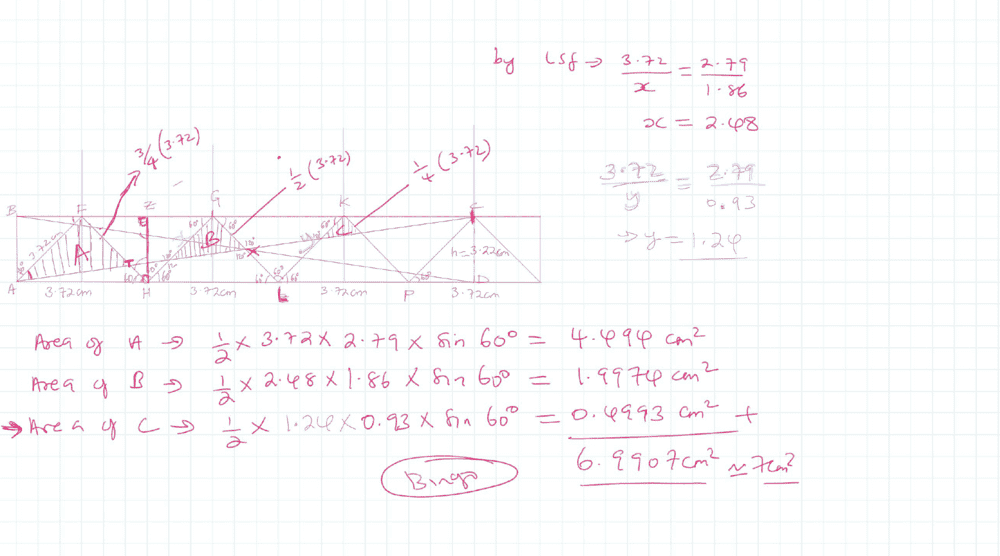 by LSf → 3.72/x = 2.79/1.86
x = 2.48
3.72/y = 2.79/0.93
→ y = 1.24
3/4 (3.72)
1/2 (3.72)
1/4 (3.72)
B F E G K
3.72cm A B C h=3.22cm
60° 60° 60° 60° 120°
A 3.72cm H 3.72cm L 3.72cm P 3.72cm D
Area of A → 1/2 × 3.72 × 2.79 × sin 60° = 4.494 cm²
Area of B → 1/2 × 2.48 × 1.86 × sin 60° = 1.9974 cm²
→ Area of C → 1/2 × 1.24 × 0.93 × sin 60° = 0.4993 cm² +
6.9907cm² ≈ 7cm²
Bingo